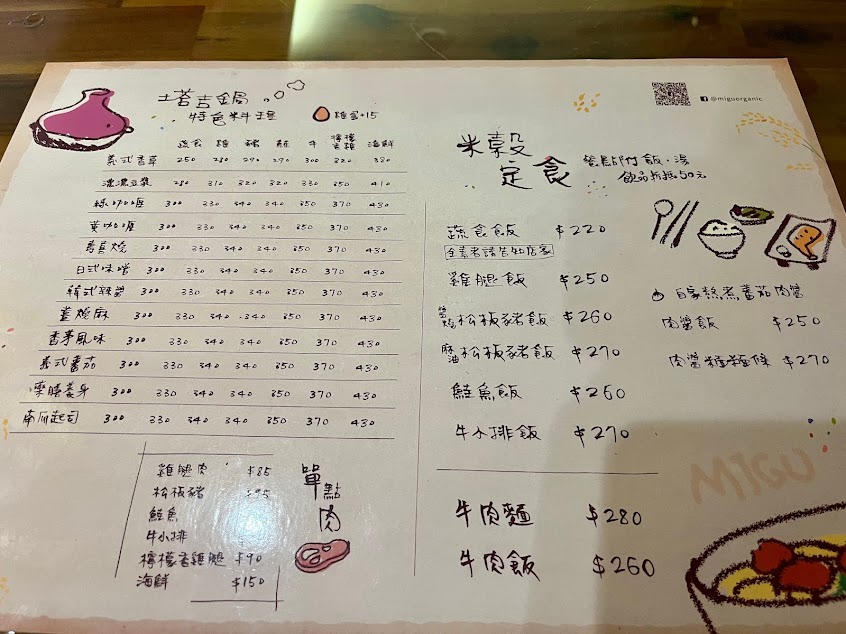 塔吉鍋
特色料理
雞蛋+15
蔬食 雞 豬 鮭 牛 檸檬雞腿 海鮮
義式香草 250 280 290 290 300 320 380
濃濃豆漿 280 310 320 320 330 350 410
綠咖喱 300 330 340 340 350 370 430
黃咖喱 300 330 340 340 350 370 430
壽喜燒 300 330 340 340 350 370 430
日式味噌 300 330 340 340 350 370 430
韓式辣醬 300 330 340 340 350 370 430
薑燒麻 300 330 340 340 350 370 430
香茅風味 300 330 340 340 350 370 430
義式番茄 300 330 340 340 350 370 430
藥膳養身 300 330 340 340 350 370 430
南瓜起司 300 330 340 340 350 370 430
單點肉
雞腿肉 $85
松板豬 $95
鮭魚
牛小排
檸檬香雞腿 $90
海鮮 $150
@miguorganic
米穀定食
餐點附飯、湯
飲品折抵50元
蔬食飯 $220
全素者請告知店家
雞腿飯 $250
醬燒松板豬飯 $260
麻油松板豬飯 $270
鮭魚飯 $260
牛小排飯 $270
自家熬煮番茄肉醬
肉醬飯 $250
肉醬粗麵條 $270
牛肉麵 $280
牛肉飯 $260
MIGU